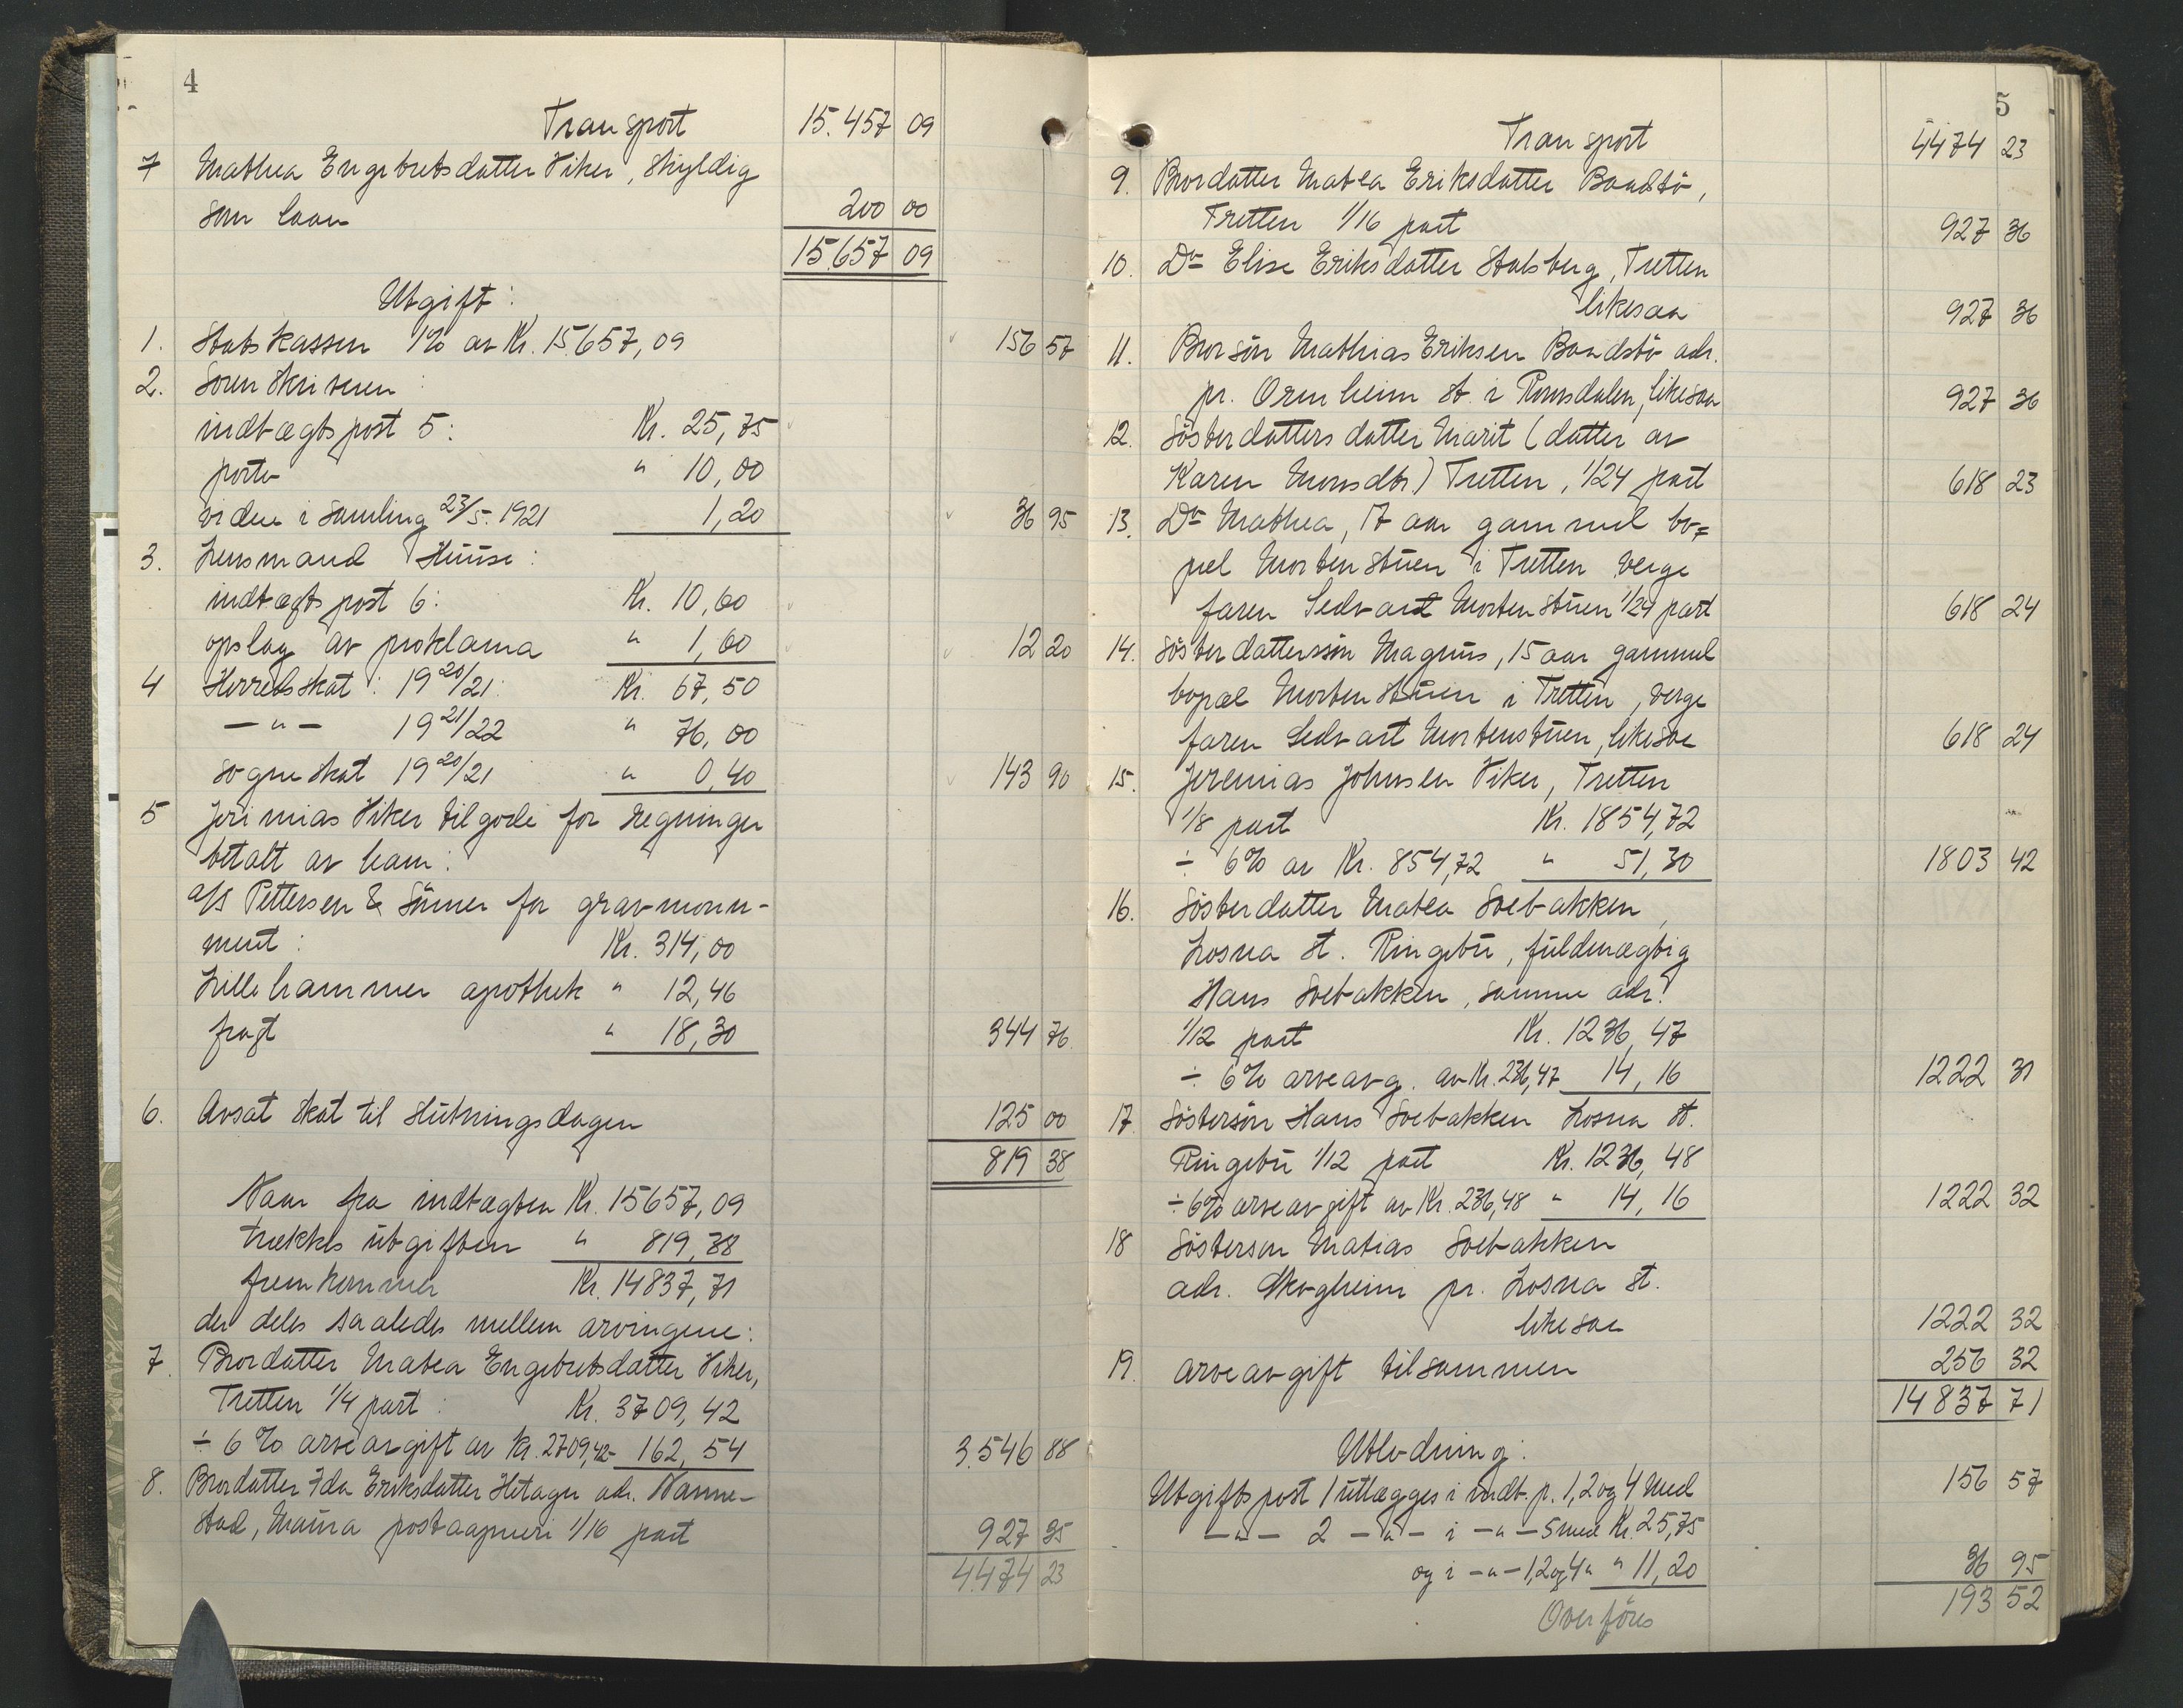 4
Transport 15.457 09
7 Mathea Engebretsdatter Viker, skyldig
som laan 200 00
15.657 09
Utgift:
1. Statskassen 1% av Kr. 15657,09 156 57
2. Sorenskriveren:
indtægtspost 5: Kr. 25,75
porto " 10,00
videre i samling 23/5. 1921 1,20 36 95
3. Lensmand Huuse:
indtægtspost 6: Kr. 10,60
opslag av proklama " 1,60 12 20
4 Herredsskat: 1920/21: Kr. 67,50
— " — 1921/22 " 76,00
sogneskat 1920/21 " 0,40 143 90
5 Jerimias Viker tilgode for regninger
betalt av ham:
a/s Pettersen & Sönner for gravmonu-
ment: Kr. 314,00
Lillehammer apothek " 12,46
fragt " 18,30 344 76
6. Avsat skat til slutningsdagen 125 00
819 38
Naar fra indtægten Kr. 15657,09
trækkes utgiften " 819,38
fremkommer Kr. 14837,71
der deles saaledes mellem arvingene:
7. Brordatter Matea Engebretsdatter Viker,
Tretten 1/4 part: Kr. 3709,42
÷ 6% arveavgift av Kr. 2709,42 - 162,54 3.546 88
8. Brordatter Ida Eriksdatter adr. Nanne-
stad, Maura postaapneri 1/16 part 927 35
4474 23
5
Transport 4474 23
9. Brordatter Matea Eriksdatter Baadstö,
Tretten 1/16 part 927 36
10. Do Elise Eriksdatter Stalsberg, Tretten
likesaa 927 36
11. Brorsön Mathias Eriksen Baadstö adr.
pr. Ormheim st. i Romsdalen, likesaa 927 36
12. Sösterdatters datter Marit (datter av
Karen Monsdtr.) Tretten, 1/24 part 618 23
13. Do Mathea, 17 aar gammel bo=
pæl Mortenstuen i Tretten verge
faren Sedvart Mortenstuen 1/24 part 618 24
14. Sösterdattersön Magnus, 15 aar gammel
bopæl Mortenstuen i Tretten, verge
faren Sedvart Mortenstuen, likesaa 618 24
15. Jeremias Johnsen Viker, Tretten
1/8 part Kr. 1854,72
÷ 6% av Kr. 854,72 " 51,30 1803 42
16. Sösterdatter Matea Svebakken,
Losna st. Ringebu, fuldmægtig
Hans Svebakken, samme adr.
1/12 part Kr. 1236,47
÷ 6% arveavg. av Kr. 236,47 14,16 1222 31
17 Söstersön Hans Svebakken Losna st.
Ringebu 1/12 part Kr. 1236,48
÷ 6% arveavgift av Kr. 236,48 - 14,16 1222 32
18 Söstersøn Matias Svebakken
adr. Skogheim pr. Losna st.
likesaa 1222 32
19. arveavgift tilsammen 256 32
14837 71
Utlodning:
Utgiftspost 1 utlægges i indt. p. 1, 2 og 4 med 156 57
— " — 2 — " — i — " — 5 med Kr. 25,75
og i — " — 1,2 og 4 " " 11,20 36 95
193 52
Overföres